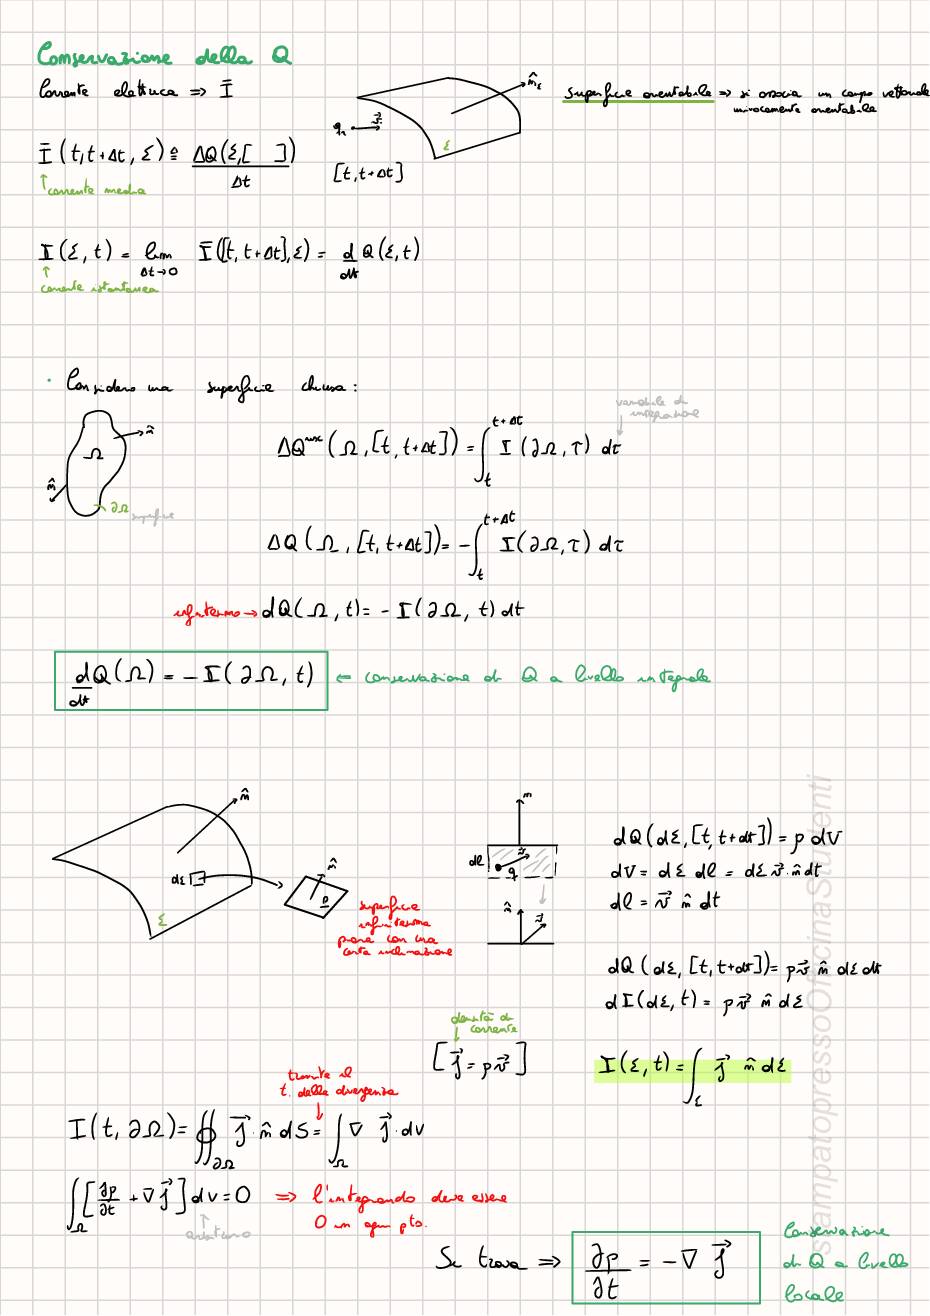 Conservazione della Q
Corrente elettrica ⇒ Ī
n̂_Σ
superficie orientabile ⇒ si associa un campo vettoriale
univocamente orientabile
q, v⃗
Σ
Ī(t, t+Δt, Σ) ≙ ΔQ(Σ,[ ])/Δt
[t, t+Δt]
↑ corrente media
I(Σ, t) = lim Δt→0 Ī([t, t+Δt], Σ) = d/dt Q(Σ, t)
↑
corrente istantanea
· Considero una superficie chiusa:
variabile di
integrazione
n̂
Ω
n̂
∂Ω superficie
ΔQ^usc (Ω, [t, t+Δt]) = ∫_t^{t+Δt} I (∂Ω, τ) dτ
ΔQ (Ω, [t, t+Δt]) = - ∫_t^{t+Δt} I(∂Ω, τ) dτ
→ dQ(Ω, t) = - I(∂Ω, t) dt
d/dt Q(Ω) = - I(∂Ω, t) ← conservazione di Q a livello integrale
n̂
dΣ
Σ
n̂
p
superficie
infinitesima
piana con una
certa inclinazione
n
dl
v⃗
q
n̂
v⃗
dQ(dΣ, [t, t+dt]) = ρ dV
dV = dΣ dl = dΣ v⃗·n̂ dt
dl = v⃗ n̂ dt
dQ (dΣ, [t, t+dt]) = ρv⃗ n̂ dΣ dt
dI(dΣ, t) = ρv⃗ n̂ dΣ
densità di
corrente
[j⃗ = ρv⃗]
I(Σ, t) = ∫_Σ j⃗ n̂ dΣ
tramite il
t. della divergenza
I(t, ∂Ω) = ∯_∂Ω j⃗·n̂ dS = ∫_Ω ∇ j⃗·dv
∫_Ω [∂ρ/∂t + ∇ j⃗] dv = 0 ⇒ l'integrando deve essere
0 in ogni pto.
↑
arbitrario
Si trova ⇒ ∂ρ/∂t = -∇ j⃗
Conservazione
di Q a livello
locale
StampatopressoOfficinaStudenti